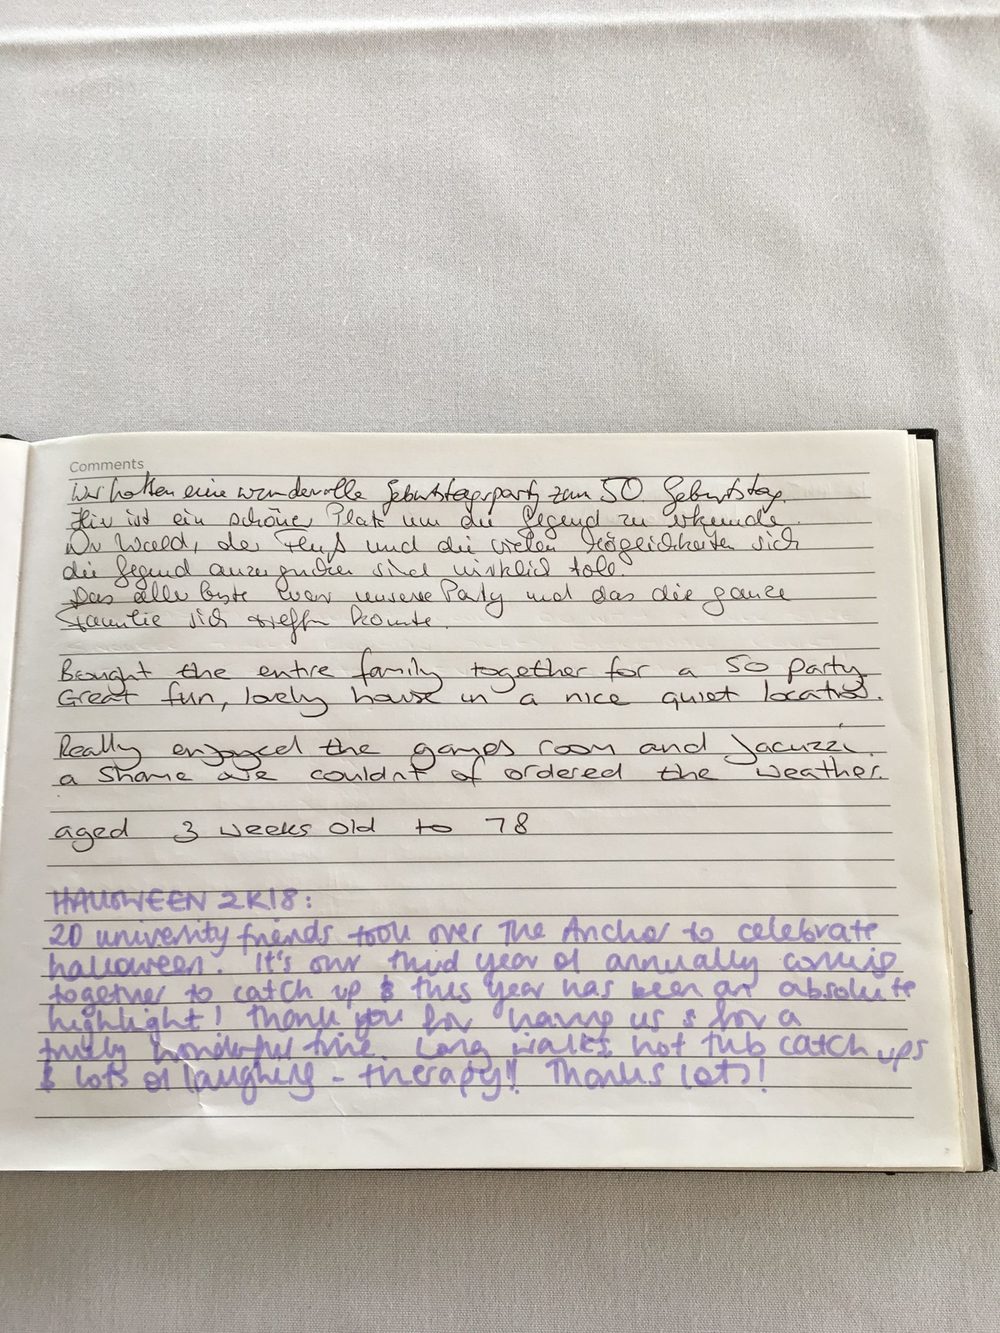 Comments
Wir hatten eine wundervolle Geburtstagsparty zum 50 Geburtstag.
Hier ist ein schöner Platz um die Gegend zu erkunde.
Der Wald, der Fluß und die vielen Möglichkeiten sich
die Gegend anzugucken sind wirklich toll.
Das aller beste war unsere Party und das die ganze
Familie sich treffen konnte.
Bought the entire family together for a 50 party
Great fun, lovely house in a nice quiet location.
Really enjoyed the games room and Jacuzzi.
a shame we couldnt of ordered the weather.
aged 3 weeks old to 78
HALLOWEEN 2K18:
20 university friends took over The Anchor to celebrate
halloween. It's our third year of annually coming
together to catch up & this year has been an absolute
highlight! Thank you for having us & for a
truly wonderful time. Long walks, hot tub catch ups
& lots of laughing - therapy!! Thanks lots!